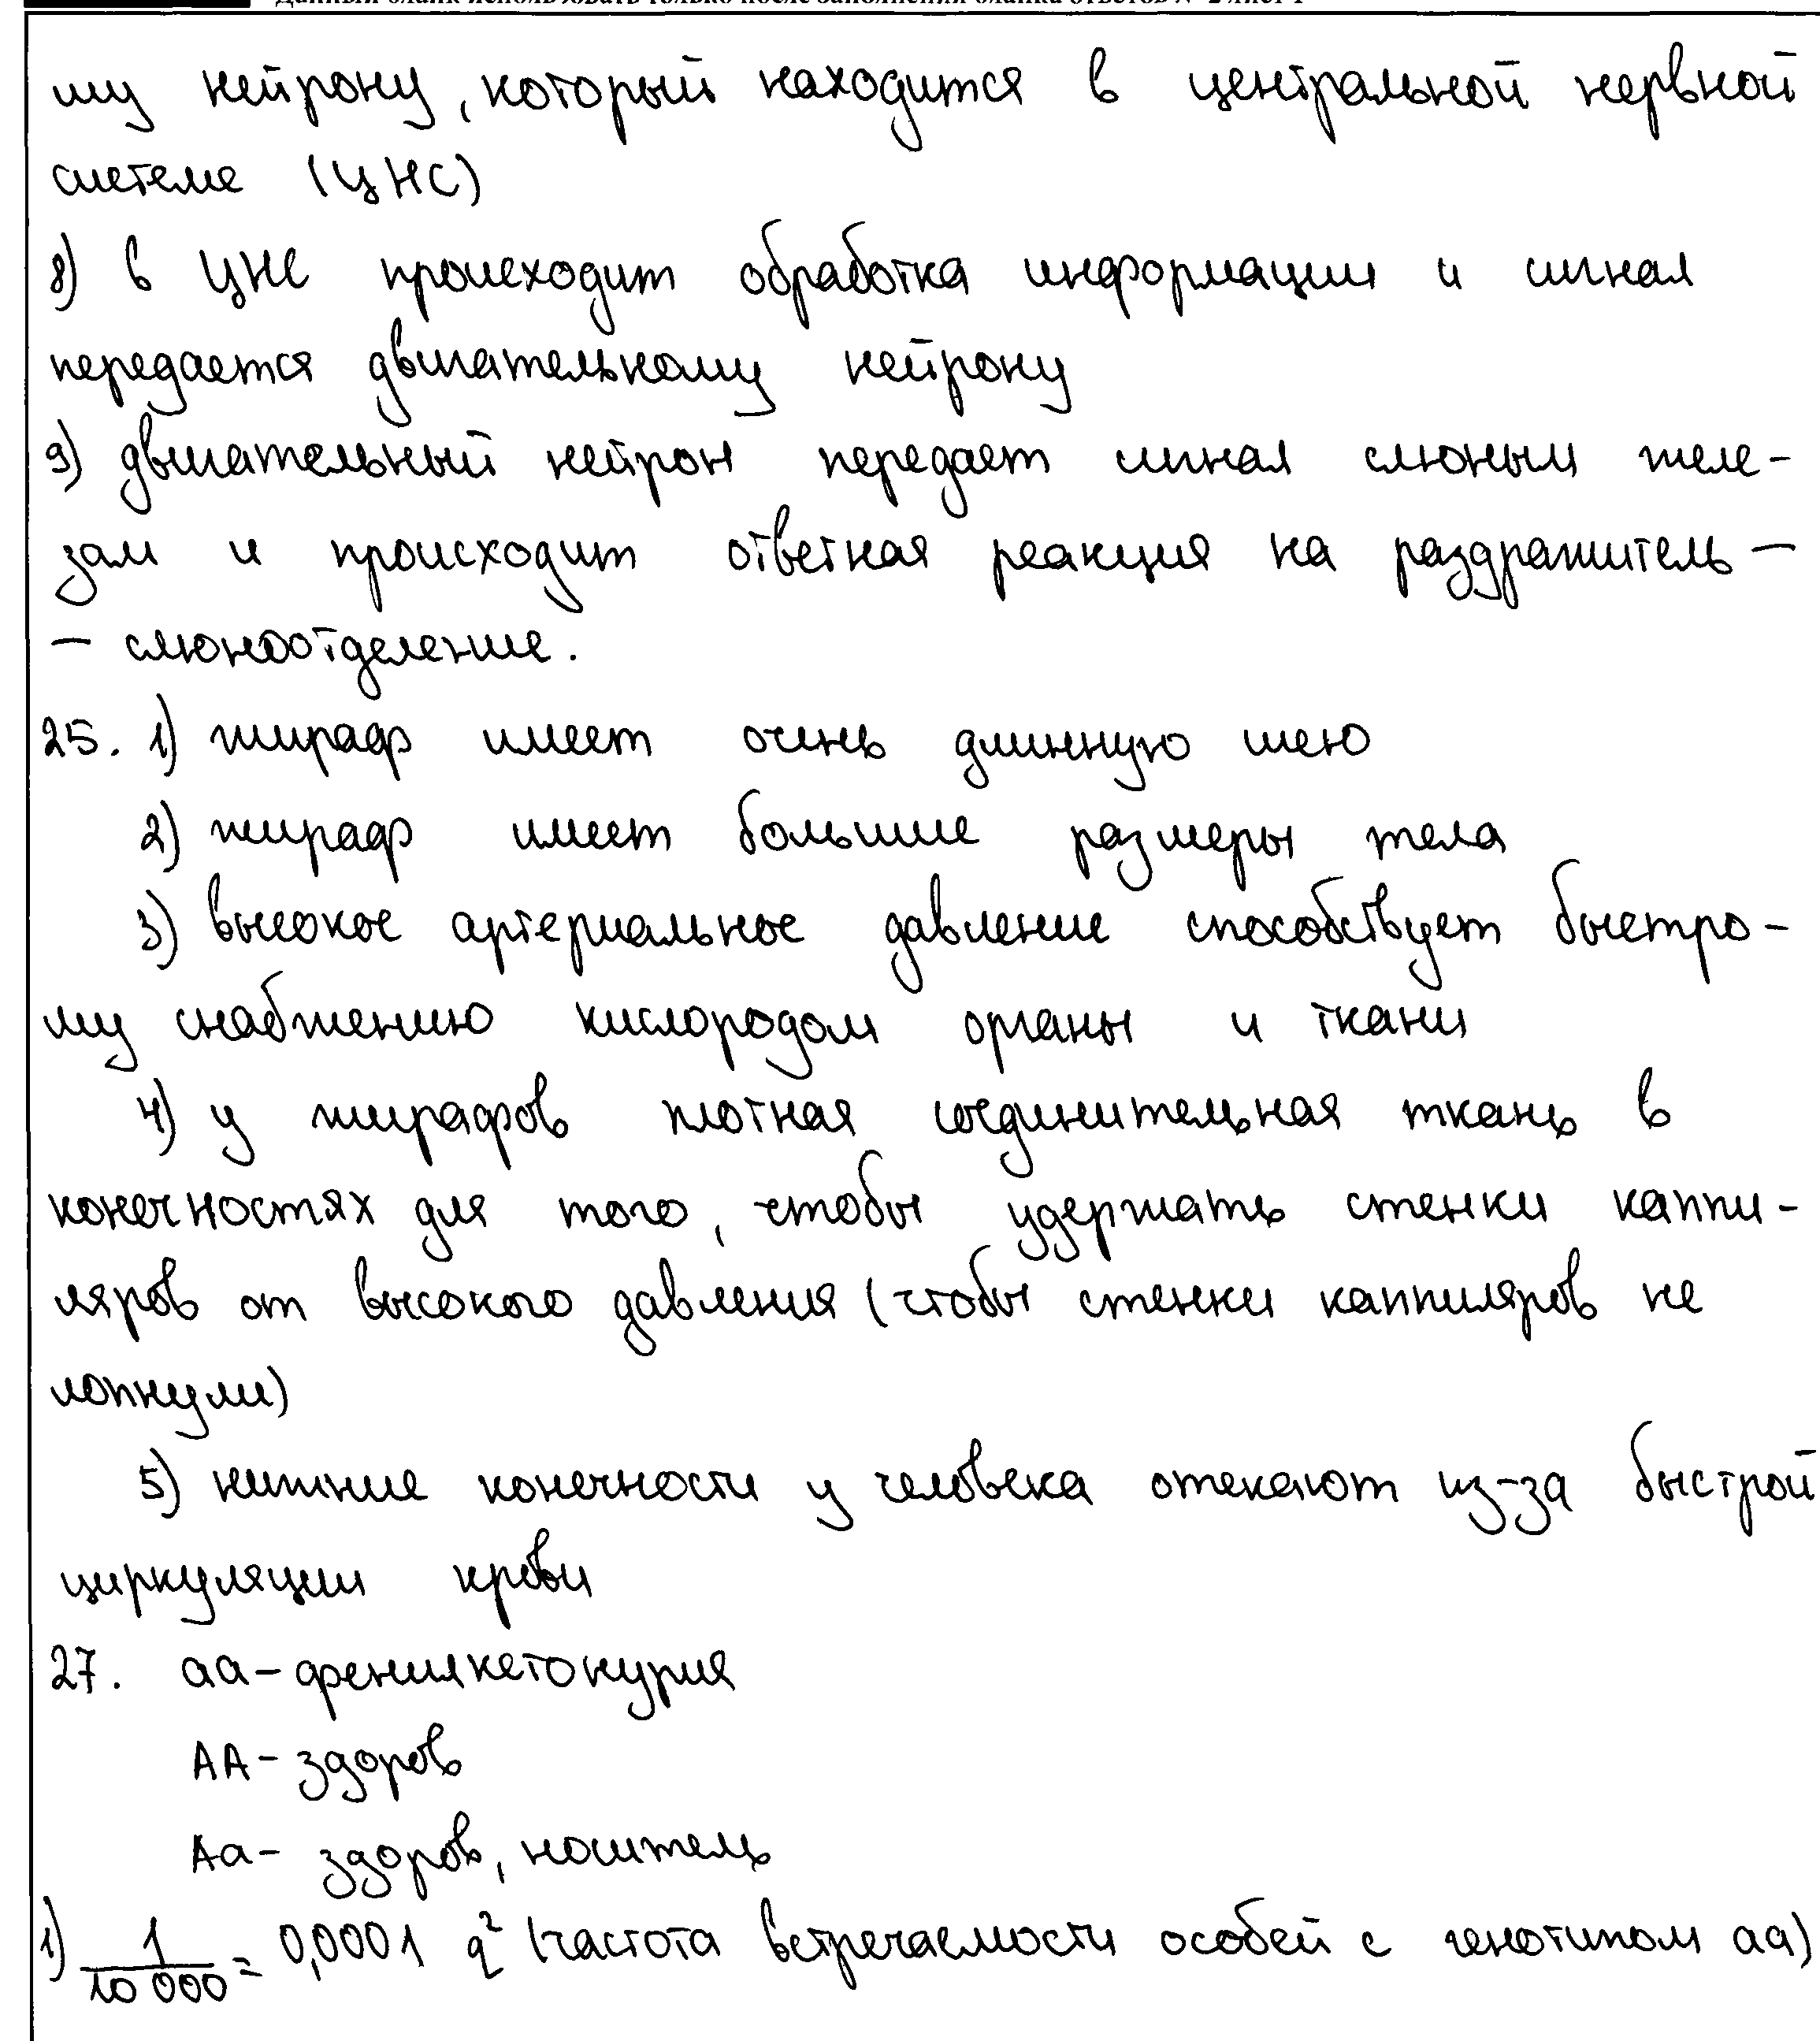 Данный бланк использовать только после заполнения бланка ответов № 2 лист 1
шу нейрону, который находится в центральной нервной
системе (ЦНС)
8) в ЦНС происходит обработка информации и сигнал
передается двигательному нейрону
9) двигательный нейрон передает сигнал слюным желе-
зам и происходит ответная реакция на раздражитель —
— слюноотделение.
25. 1) жираф имеет очень длинную шею
2) жираф имеет большие размеры тела
3) высокое артериальное давление способствует быстро-
му снабжению кислородом органы и ткани
4) у жирафов плотная соединительная ткань в
конечностях для того, чтобы удержать стенки каппи-
ляров от высокого давления (чтобы стенки каппиляров не
лопнули)
5) нижние конечности у человека отекают из-за быстрой
циркуляции крови
27. аа - фенилкетонурия
АА - здоров
Аа - здоров, носитель
1) 1/10 000 = 0,0001 q² (частота встречаемости особей с генотипом аа)